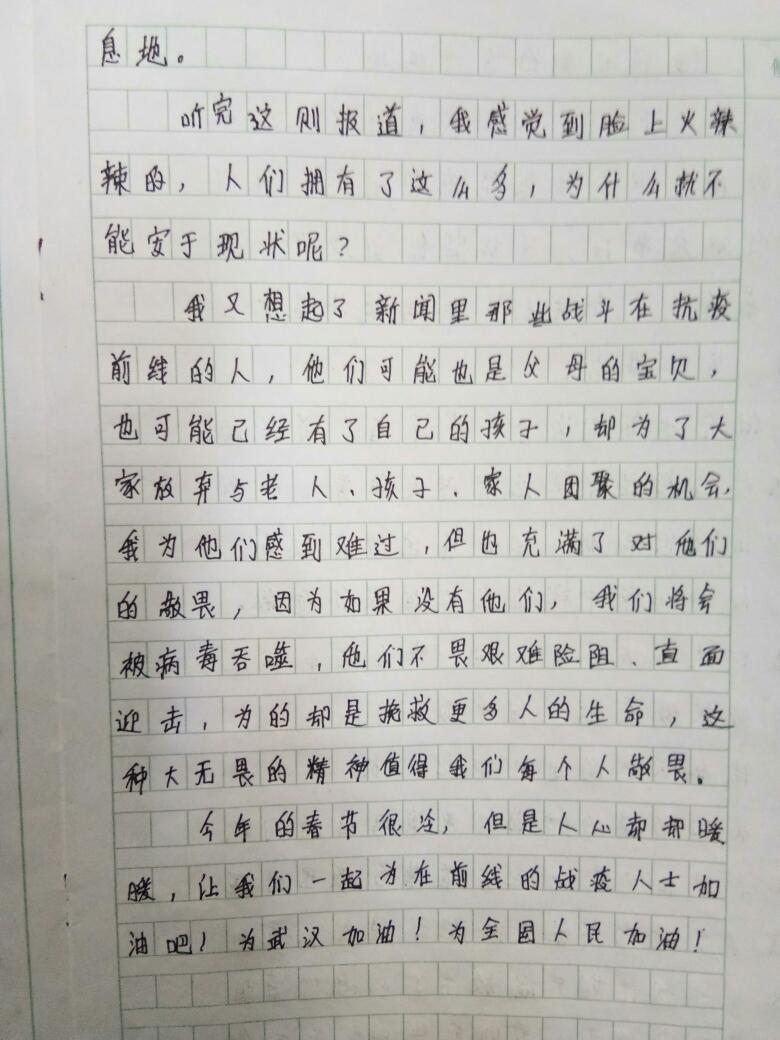 息地。
听完这则报道，我感觉到脸上火辣
辣的，人们拥有了这么多，为什么就不
能安于现状呢？
我又想起了新闻里那些战斗在抗疫
前线的人，他们可能也是父母的宝贝，
也可能已经有了自己的孩子，却为了大
家放弃与老人、孩子、家人团聚的机会，
我为他们感到难过，但也充满了对他们
的敬畏，因为如果没有他们，我们将会
被病毒吞噬，他们不畏艰难险阻、直面
迎击，为的却是挽救更多人的生命，这
种大无畏的精神值得我们每个人敬畏。
今年的春节很冷，但是人心却却暖
暖，让我们一起为在前线的战疫人士加
油吧！为武汉加油！为全国人民加油！